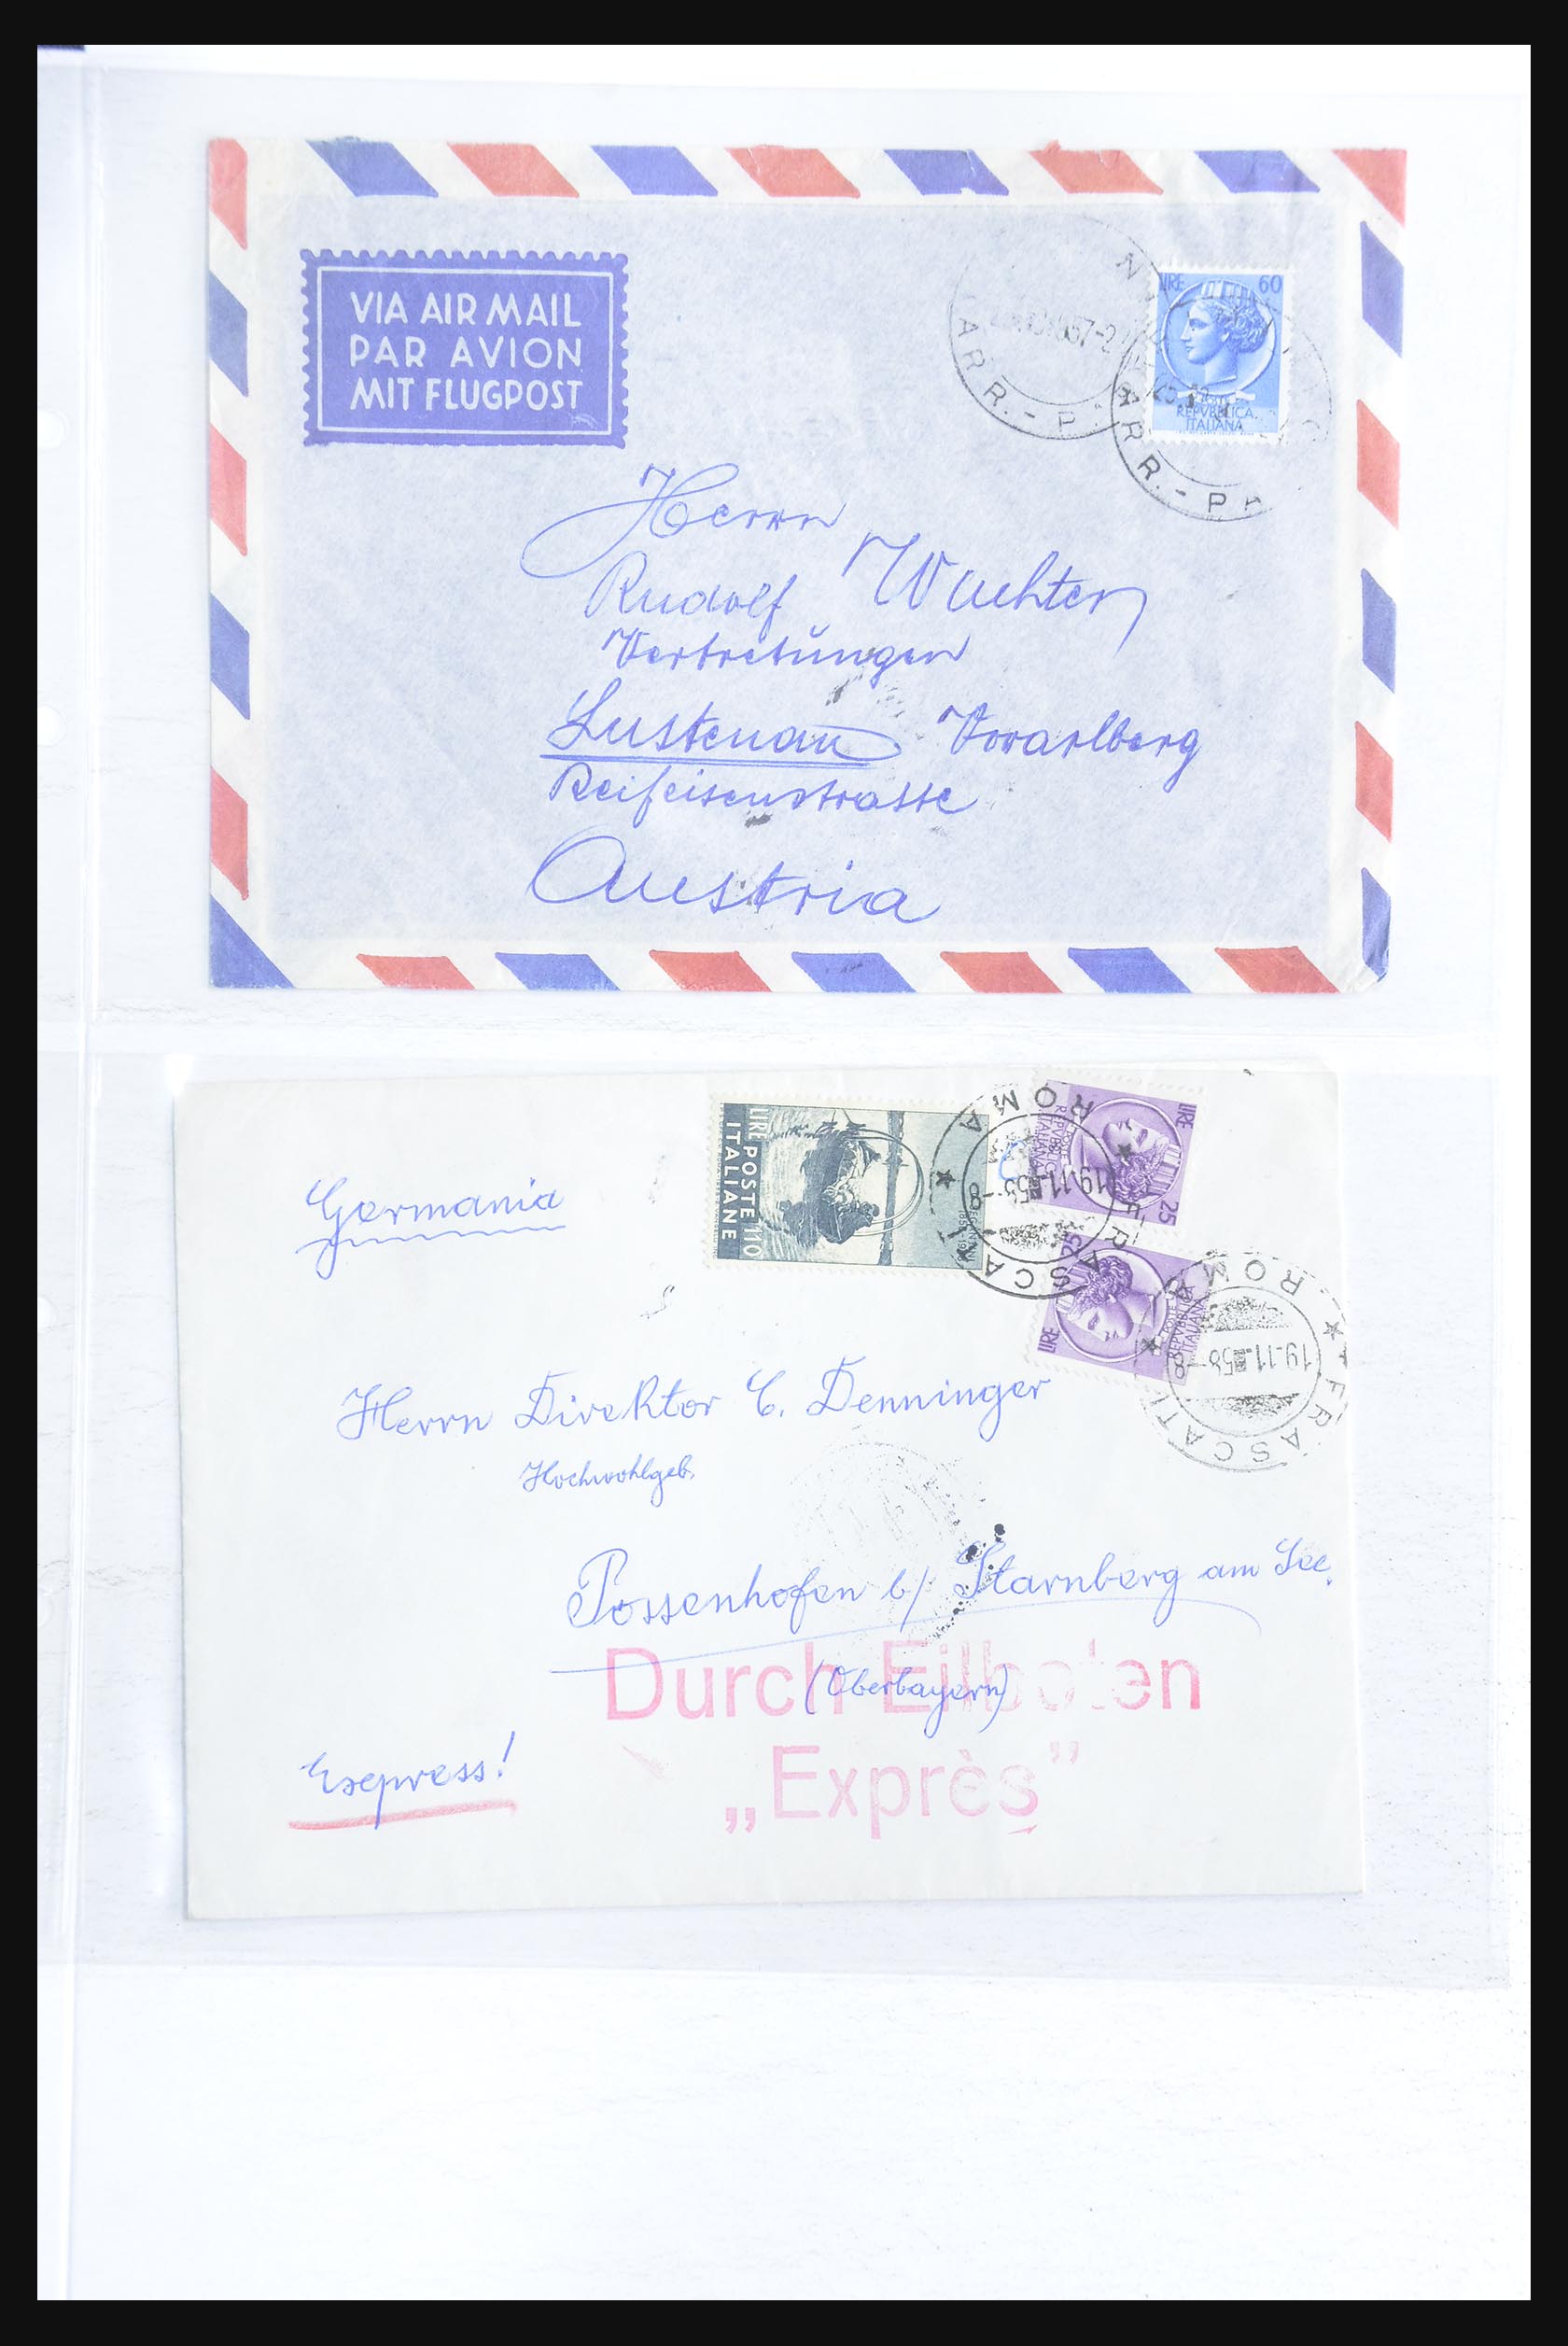 VIA AIR MAIL
PAR AVION
MIT FLUGPOST
LIRE 60
POSTE
REPVBBLICA
ITALIANA
ARR. - P
ARR. - P
Herrn
Rudolf Wachter
Vertretungen
Lustenau Vorarlberg
Reifeisenstrasse
Austria
LIRE POSTE 110
ITALIANE
LIRE 25
POSTE
REPVBBLICA
ITALIANA
LIRE 25
POSTE
REPVBBLICA
ITALIANA
FRASCATI
ROMA
19.11.58-8
FRASCATI
ROMA
19.11.58-8
Germania
Herrn Direktor C. Denninger
Hochwohlgeb.
Possenhofen b/ Starnberg am See.
(Oberbayern)
Durch Eilboten
„Exprès”
Express!